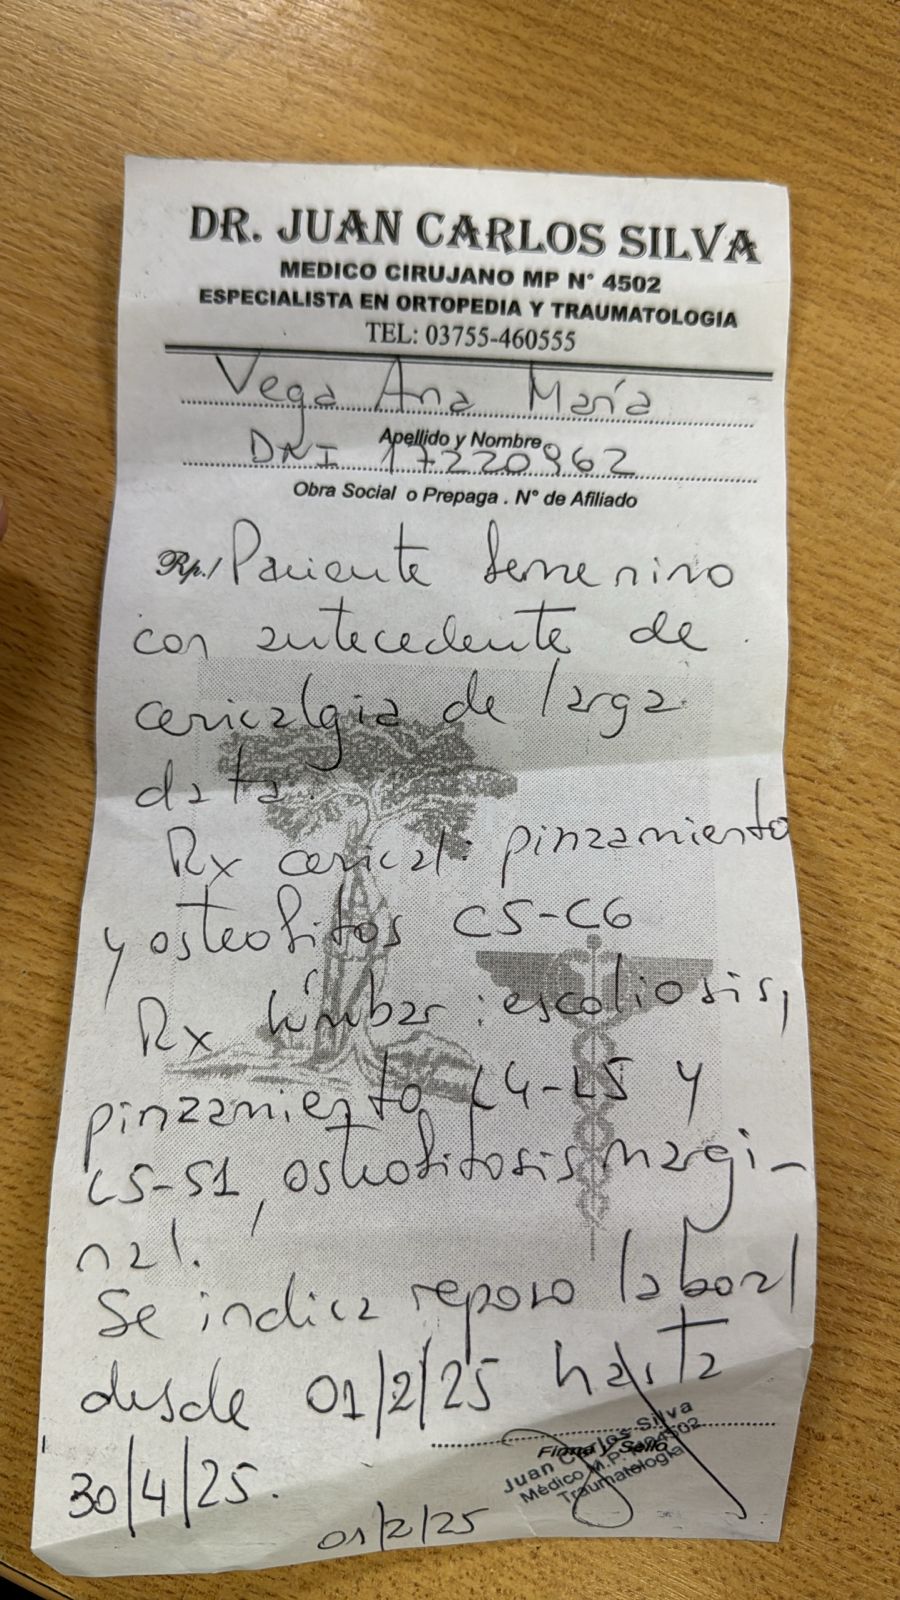 DR. JUAN CARLOS SILVA
MEDICO CIRUJANO MP N° 4502
ESPECIALISTA EN ORTOPEDIA Y TRAUMATOLOGIA
TEL: 03755-460555
Vega Ana María
Apellido y Nombre
DNI 17220962
Obra Social o Prepaga . N° de Afiliado
Rp./ Paciente femenino
con antecedente de
cervicalgia de larga
data.
Rx cervical: pinzamiento
y osteofitos C5-C6
Rx lúmbar: escoliosis,
pinzamiento L4-L5 y
L5-S1, osteofitosis margi-
nal.
Se indica reposo laboral
desde 01/2/25 hasta
30/4/25.
Firma y Sello
Juan Carlos Silva
Médico M.P. N°4502
Traumatología
01/2/25